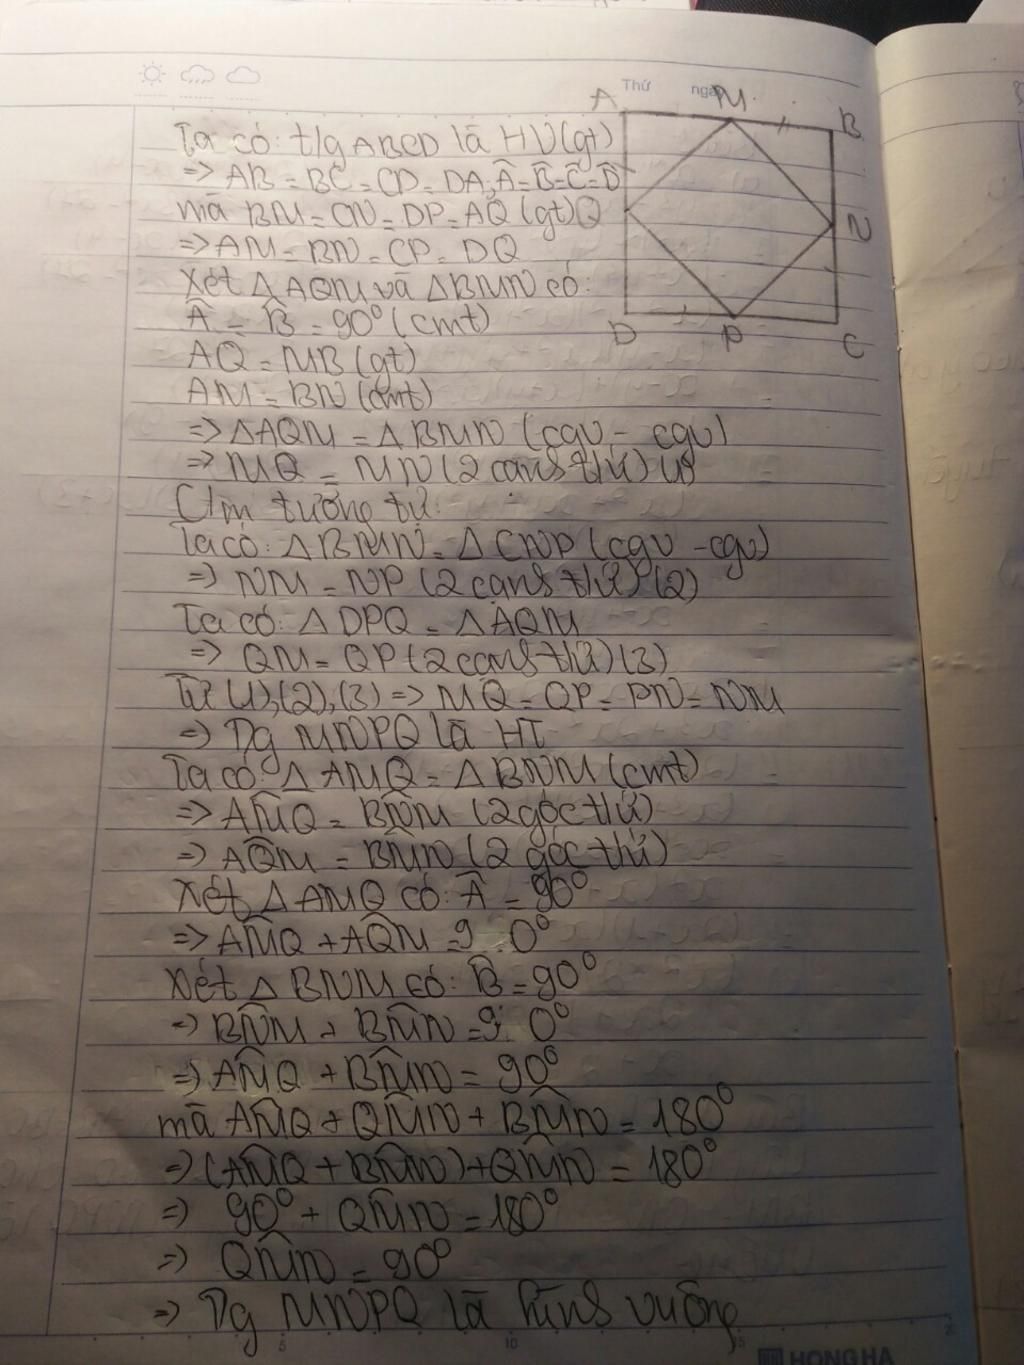 Thứ ngày
A M B
Ta có: t/g ABCD là HV(gt)
=> AB = BC = CD = DA, Â = B̂ = Ĉ = D̂
mà BM = CN = DP = AQ (gt) Q N
=> AM = BN = CP = DQ
Xét △ AQM và △ BMN có:
Â = B̂ = 90⁰ (cmt)
D P C
AQ = MB (gt)
AM = BN (cmt)
=> △AQM = △BMN (cgv - cgv)
=> MQ = MN (2 cạnh t/ứ) (1)
C/m tương tự:
Ta có: △BMN = △CNP (cgv - cgv)
=> NM = NP (2 cạnh t/ứ) (2)
Ta có: △ DPQ = △AQM
=> QM = QP (2 cạnh t/ứ) (3)
Từ (1),(2),(3) => MQ = QP = PN = NM
=> Tg MNPQ là HT
Ta có: △ AMQ = △ BNM (cmt)
=> AM̂Q = BN̂M (2 góc t/ứ)
=> AQ̂M = BM̂N (2 góc t/ứ)
Xét △ AMQ có: Â = 90⁰
=> AM̂Q + AQ̂M = 90⁰
Xét △ BNM có: B̂ = 90⁰
=> BN̂M + BM̂N = 90⁰
=> AM̂Q + BM̂N = 90⁰
mà AM̂Q + QM̂N + BM̂N = 180⁰
=> (AM̂Q + BM̂N) + QM̂N = 180⁰
=> 90⁰ + QM̂N = 180⁰
=> QM̂N = 90⁰
=> Tg MNPQ là hình vuông
5 10 15 20
HONG HA